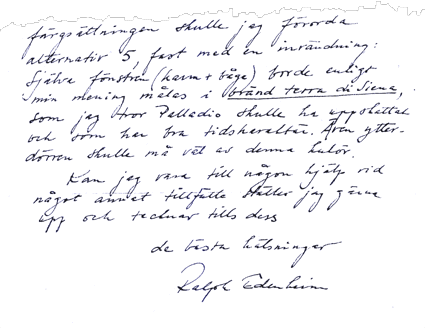 färgsättningen skulle jag förorda
alternativ 5, fast med en invändning:
Själva fönstren (karm + båge) borde enligt
min mening målas i obränd terra di Siena,
som jag tror Palladio skulle ha uppskattat
och som har bra tidskaraktär. Även ytter-
dörren skulle må väl av denna kulör.
Kan jag vara till någon hjälp vid
något annat tillfälle ställer jag gärna
upp och tecknar tills dess
de bästa hälsningar
Ralph Edenheim